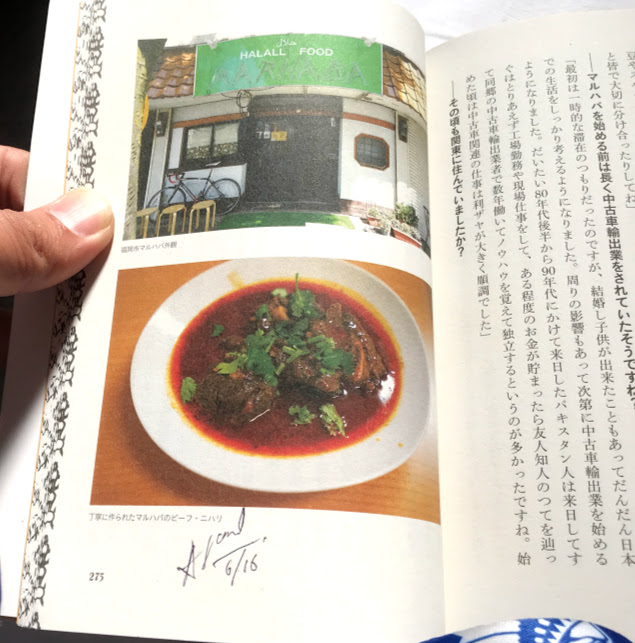 حلال
HALALL FOOD
福岡市マルハバ外観
丁寧に作られたマルハバのビーフ・ニハリ
6/16
275
と皆で大切に分け合ったりしてね」
――マルハバを始める前は長く中古車輸出業をされていたそうですね?
「最初は一時的な滞在のつもりだったのですが、結婚し子供が出来たこともあってだんだん日本
での生活をしっかり考えるようになりました。周りの影響もあって次第に中古車輸出業を始める
ようになりました。だいたい80年代後半から90年代にかけて来日したパキスタン人は来日してす
ぐはとりあえず工場勤務や現場仕事をして、ある程度のお金が貯まったら友人知人のつてを辿っ
て同郷の中古車輸出業者で数年働いてノウハウを覚えて独立するというのが多かったですね。始
めた頃は中古車関連の仕事は利ザヤが大きく順調でした」
――その頃も関東に住んでいましたか?